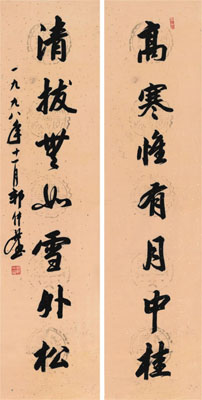 高寒惟有月中桂
清拔无如雪外松
一九九八年十一月